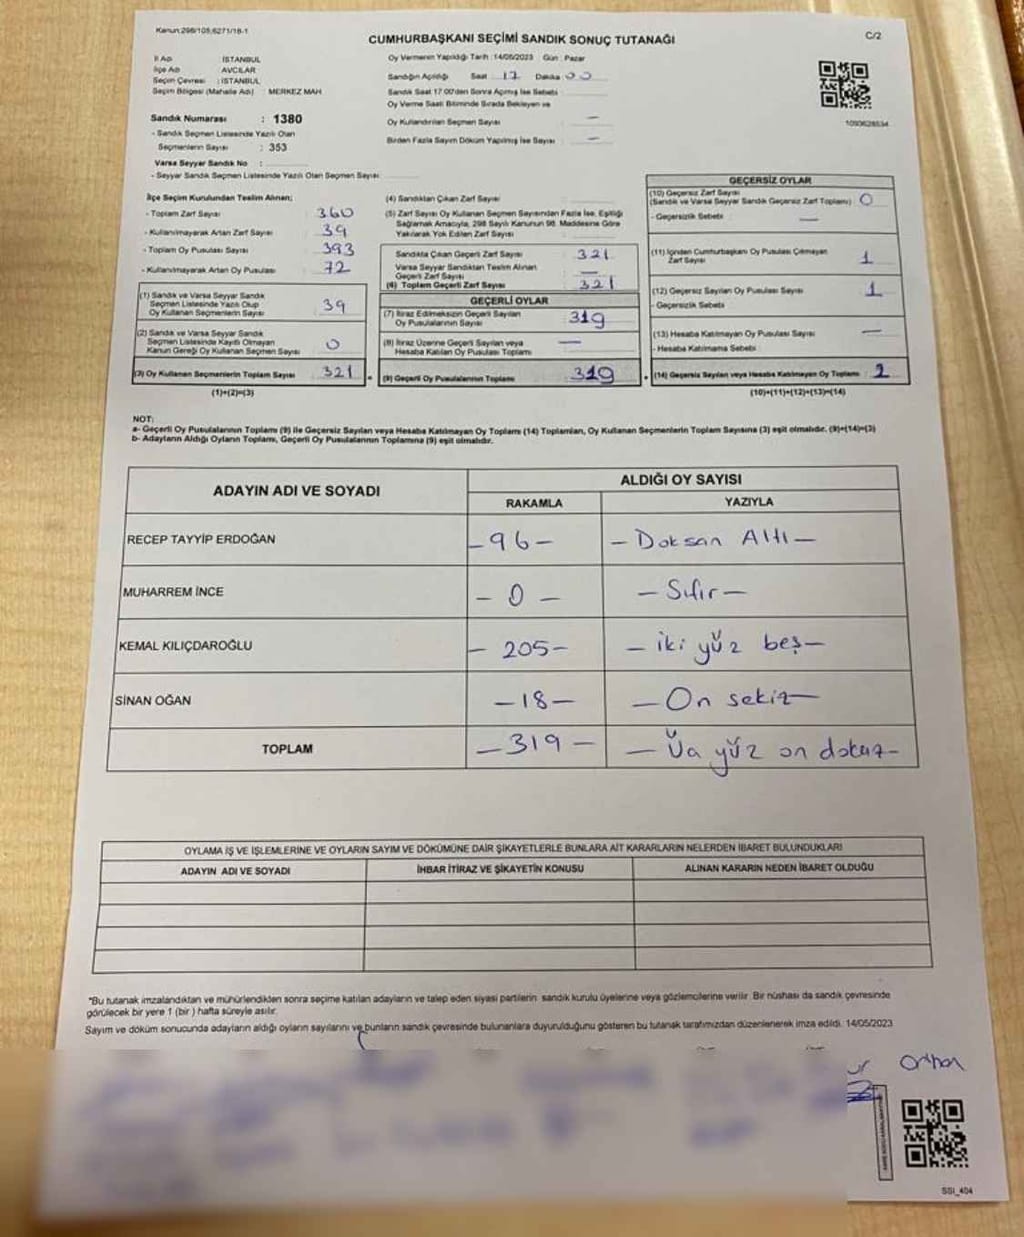 Kanun:298/105;6271/18-1
CUMHURBAŞKANI SEÇİMİ SANDIK SONUÇ TUTANAĞI
C/2
İl Adı : İSTANBUL
İlçe Adı : AVCILAR
Seçim Çevresi : İSTANBUL
Seçim Bölgesi (Mahalle Adı) : MERKEZ MAH
Sandık Numarası : 1380
- Sandık Seçmen Listesinde Yazılı Olan
Seçmenlerin Sayısı : 353
Varsa Seyyar Sandık No :
- Seyyar Sandık Seçmen Listesinde Yazılı Olan Seçmen Sayısı
Oy Vermenin Yapıldığı Tarih : 14/05/2023 Gün : Pazar
Sandığın Açıldığı Saat 17 Dakika 00
Sandık Saat 17:00'den Sonra Açılmış İse Sebebi
Oy Verme Saati Bitiminde Sırada Bekleyen ve
Oy Kullandırılan Seçmen Sayısı —
Birden Fazla Sayım Döküm Yapılmış İse Sayısı —
1090628534
İlçe Seçim Kurulundan Teslim Alınan;
- Toplam Zarf Sayısı 360
- Kullanılmayarak Artan Zarf Sayısı 39
- Toplam Oy Pusulası Sayısı 393
- Kullanılmayarak Artan Oy Pusulası 72
(1) Sandık ve Varsa Seyyar Sandık
Seçmen Listesinde Yazılı Olup
Oy Kullanan Seçmenlerin Sayısı 39
(2) Sandık ve Varsa Seyyar Sandık
Seçmen Listesinde Kayıtlı Olmayan
Kanun Gereği Oy Kullanan Seçmen Sayısı 0
(3) Oy Kullanan Seçmenlerin Toplam Sayısı 321
(1)+(2)=(3)
(4) Sandıktan Çıkan Zarf Sayısı
(5) Zarf Sayısı Oy Kullanan Seçmen Sayısından Fazla İse, Eşitliği
Sağlamak Amacıyla, 298 Sayılı Kanunun 98. Maddesine Göre
Yakılarak Yok Edilen Zarf Sayısı
Sandıkta Çıkan Geçerli Zarf Sayısı 321
Varsa Seyyar Sandıktan Teslim Alınan
Geçerli Zarf Sayısı —
(6) Toplam Geçerli Zarf Sayısı 321
GEÇERLİ OYLAR
(7) İtiraz Edilmeksizin Geçerli Sayılan
Oy Pusulalarının Sayısı 319
(8) İtiraz Üzerine Geçerli Sayılan veya
Hesaba Katılan Oy Pusulası Toplamı —
(9) Geçerli Oy Pusulalarının Toplamı 319
GEÇERSİZ OYLAR
(10) Geçersiz Zarf Sayısı
(Sandık ve Varsa Seyyar Sandık Geçersiz Zarf Toplamı) 0
- Geçersizlik Sebebi —
(11) İçinden Cumhurbaşkanı Oy Pusulası Çıkmayan
Zarf Sayısı 1
(12) Geçersiz Sayılan Oy Pusulası Sayısı 1
- Geçersizlik Sebebi
(13) Hesaba Katılmayan Oy Pusulası Sayısı —
- Hesaba Katılmama Sebebi
(14) Geçersiz Sayılan veya Hesaba Katılmayan Oy Toplamı 2
(10)+(11)+(12)+(13)=(14)
NOT:
a- Geçerli Oy Pusulalarının Toplamı (9) ile Geçersiz Sayılan veya Hesaba Katılmayan Oy Toplamı (14) Toplamları, Oy Kullanan Seçmenlerin Toplam Sayısına (3) eşit olmalıdır. (9)+(14)=(3)
b- Adayların Aldığı Oyların Toplamı, Geçerli Oy Pusulalarının Toplamına (9) eşit olmalıdır.
ADAYIN ADI VE SOYADI
ALDIĞI OY SAYISI
RAKAMLA YAZIYLA
RECEP TAYYİP ERDOĞAN -96- - Doksan Altı -
MUHARREM İNCE - 0 - - Sıfır -
KEMAL KILIÇDAROĞLU - 205- - iki yüz beş -
SİNAN OĞAN -18- - On sekiz -
TOPLAM -319- - Üa yüz on dokuz -
OYLAMA İŞ VE İŞLEMLERİNE VE OYLARIN SAYIM VE DÖKÜMÜNE DAİR ŞİKAYETLERLE BUNLARA AİT KARARLARIN NELERDEN İBARET BULUNDUKLARI
ADAYIN ADI VE SOYADI İHBAR İTİRAZ VE ŞİKAYETİN KONUSU ALINAN KARARIN NEDEN İBARET OLDUĞU
*Bu tutanak imzalandıktan ve mühürlendikten sonra seçime katılan adayların ve talep eden siyasi partilerin sandık kurulu üyelerine veya gözlemcilerine verilir. Bir nüshası da sandık çevresinde
görülecek bir yere 1 (bir) hafta süreyle asılır.
Sayım ve döküm sonucunda adayların aldığı oyların sayılarını ve bunların sandık çevresinde bulunanlara duyurulduğunu gösteren bu tutanak tarafımızdan düzenlenerek imza edildi. 14/05/2023
Orhan
SSI_404